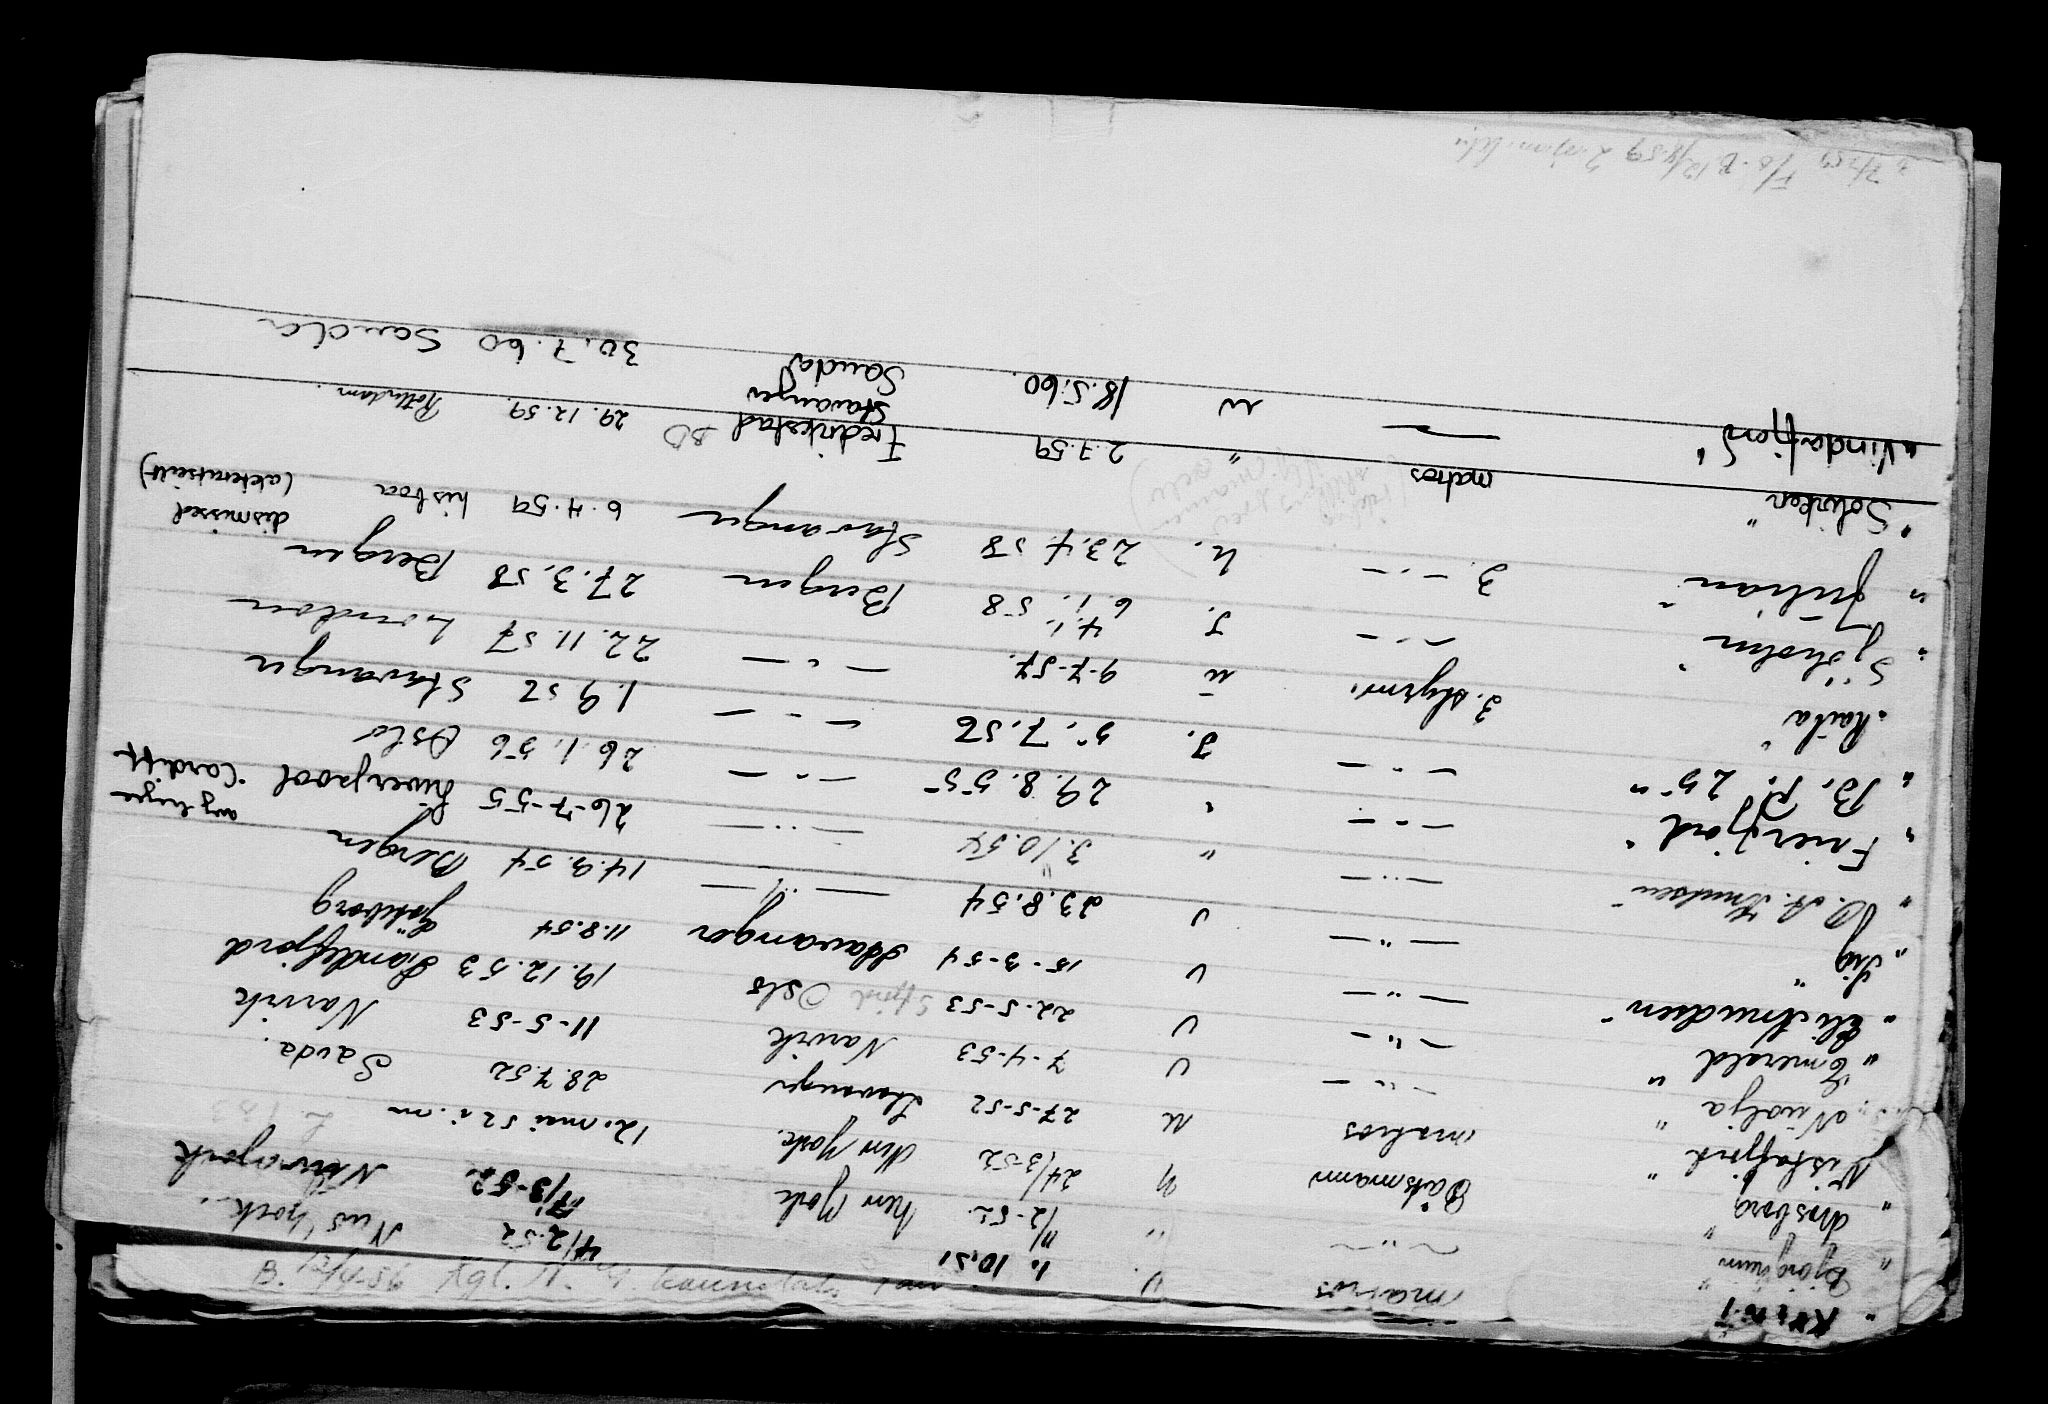 B. 12/4-56 Kgl. N.
" Kvint " matros U 1. 10.51 4/2.52 New York.
" Bjørghaug " — " — " 11/2-52. New York 17/3-52. New York
" Mosborg " Båtsmann U 24/3-52 New York. 12. mai 52
" Vistafjord " matros U 27-5-52 Stavanger 28.7.52 Sauda.
" Nidolja " — " — U 7-4-53 Narvik 11-5-53 Narvik
" Emerald " — " — U 22-5-53 Oslo 19.12.53 Sandefjord
" Elie Knudsen " — " — U 15-3-54 Stavanger 11.8.54 Göteborg
" Sig " — " — U 23.8.54 — " — 14.9.54 Bergen
" O. A. Knudsen " — " — " 3.10.54 — " — 26-7-55 Liverpool Cardiff
" Frierfjord " — " — " 29.8.55 — " — 26.1.56 Oslo
" B. P. 25 " — " — I. 5.7.56 — " — 1.9.56 Stavanger
" Raila " 3. styrm. U 9-7-57. — " — 22.11.57 London
" Sjøholm " — " — I. 6.1.58 Bergen 27.3.58 Bergen
" Julian " 3. — " — U. 23.4.58 Stavanger 6.4.59 Lisboa dismissed (akterutseilt)
" Solviken " matros " 2.7.59 Fredrikstad BD 29.12.59. Rotterdam.
" Vindafjord " — U 18.5.60. Stavanger Sauda 30.7.60 Sauda
F/O. B. 12/8.59